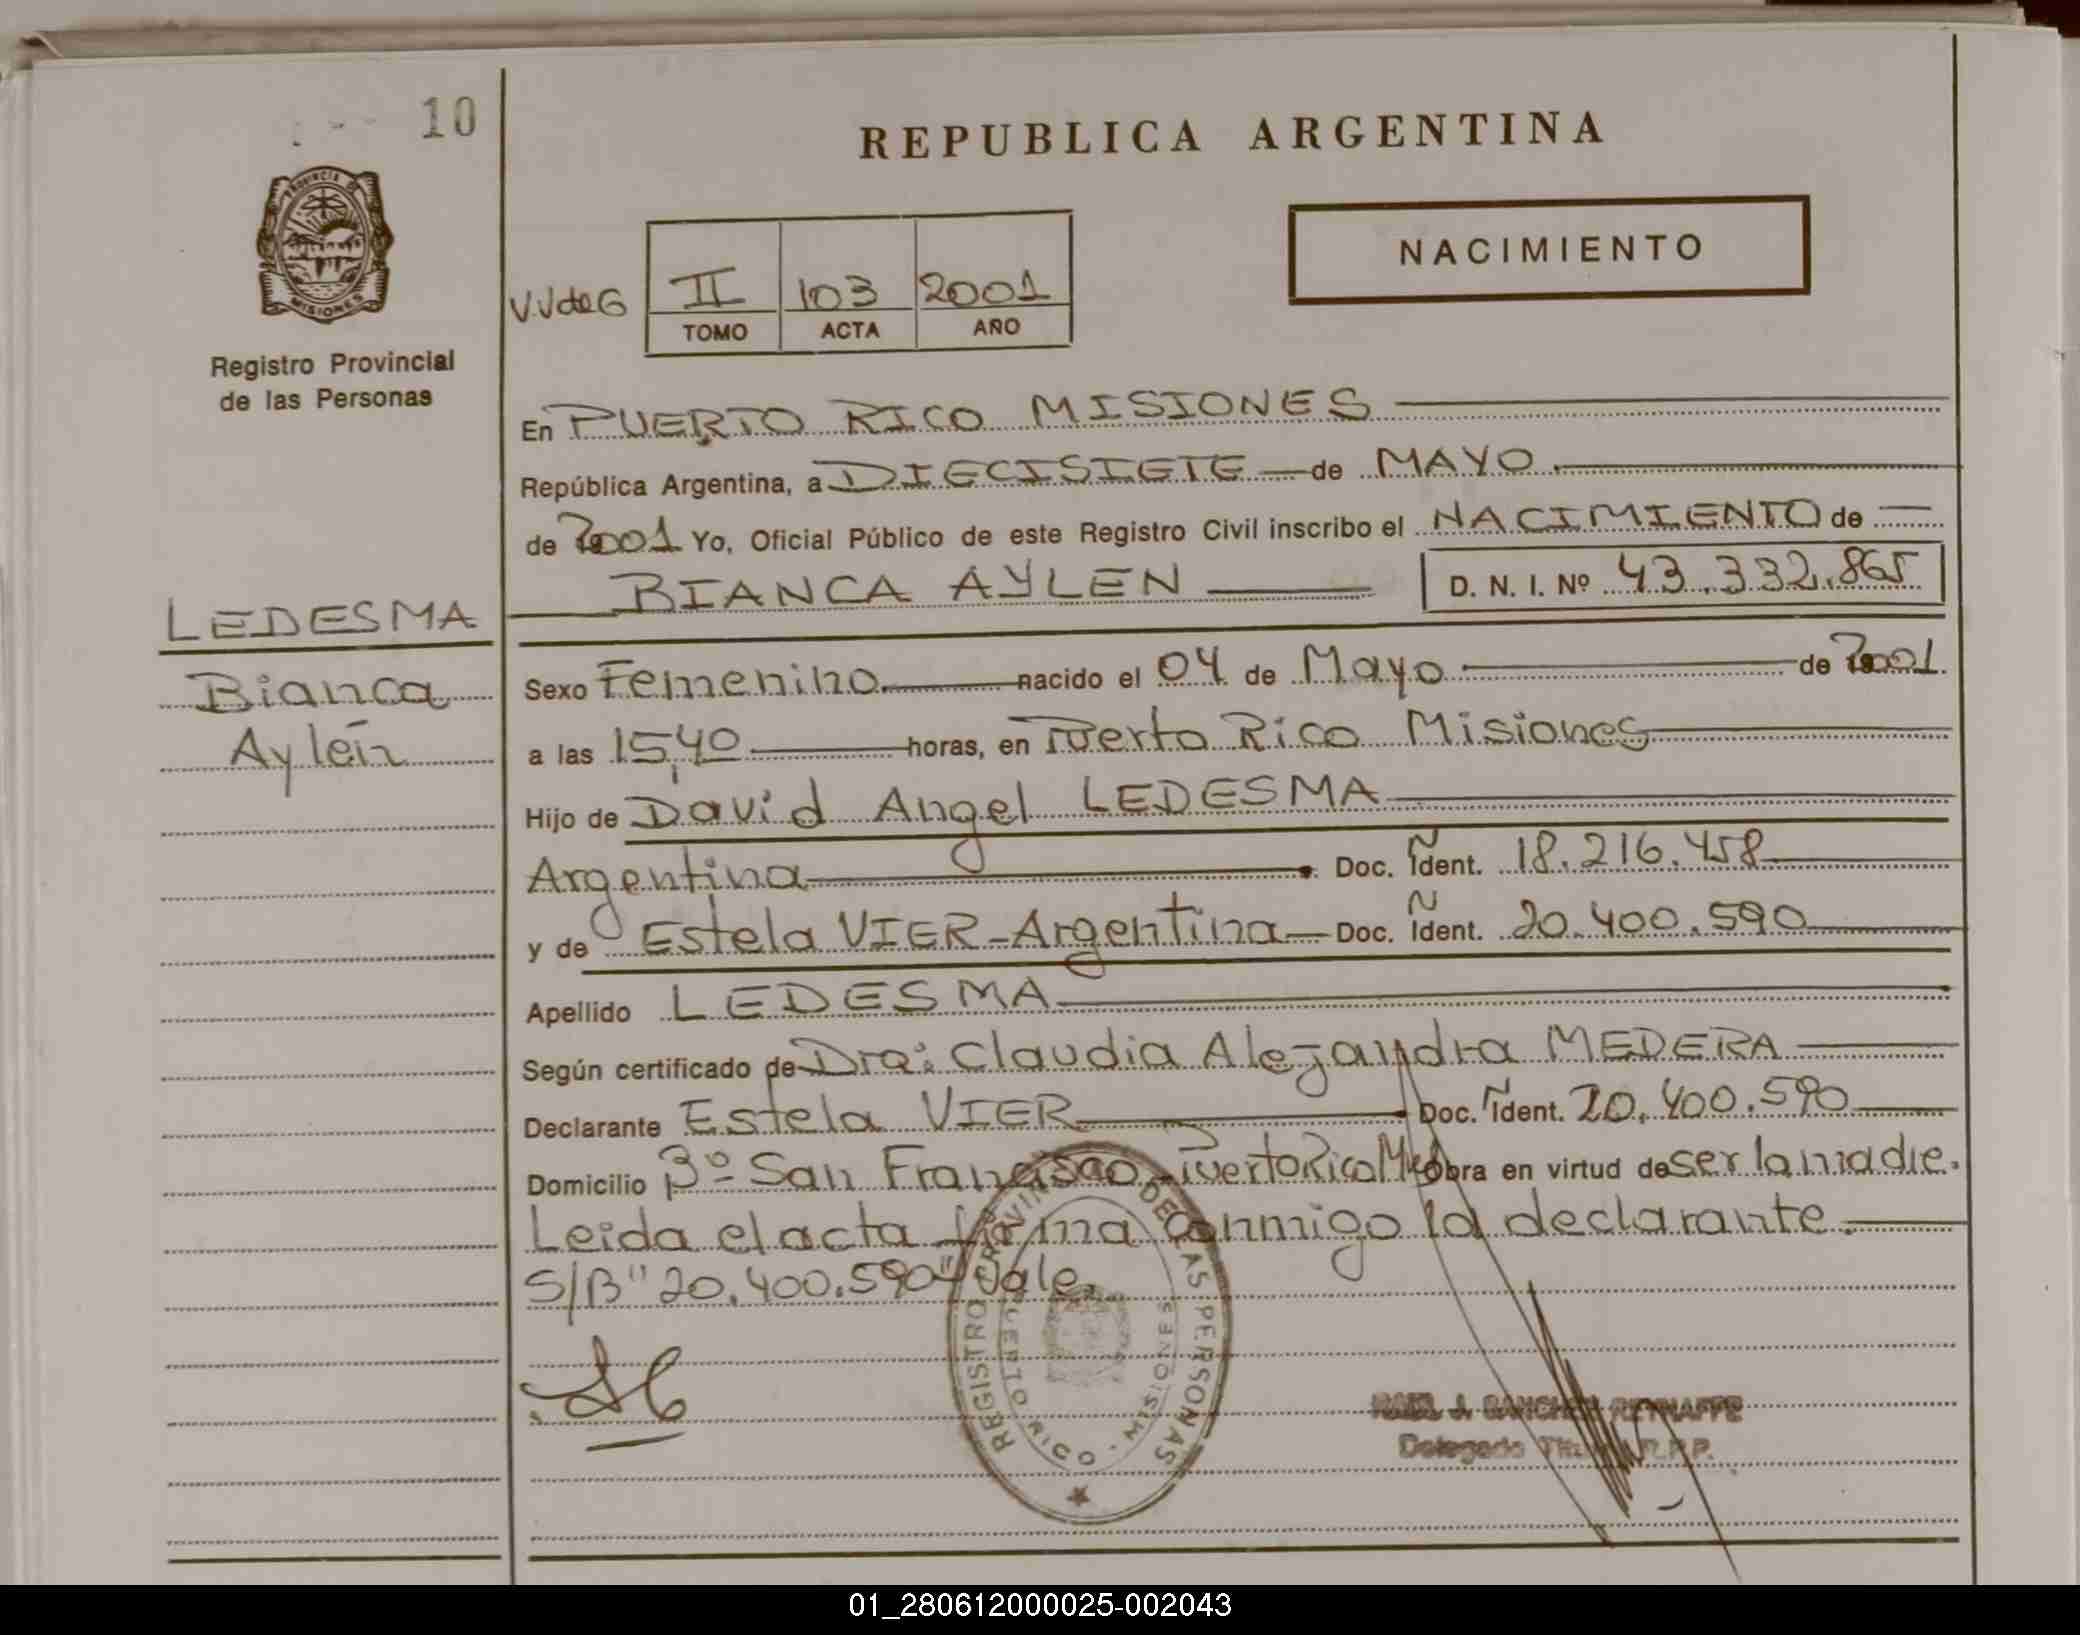 10
REPUBLICA ARGENTINA
PROVINCIA DE
MISIONES
Registro Provincial
de las Personas
NACIMIENTO
V.V de G
II 103 2001
TOMO ACTA AÑO
En PUERTO RICO MISIONES
República Argentina, a DIECISIETE de MAYO
de 2001 Yo, Oficial Público de este Registro Civil inscribo el NACIMIENTO de
BIANCA AYLEN D. N. I. Nº 43.332.865
LEDESMA
Bianca
Aylén
Sexo Femenino nacido el 04 de Mayo de 2001
a las 15,40 horas, en Puerto Rico Misiones
Hijo de David Angel LEDESMA
Argentina Doc. Ident. 18.216.458
y de Estela VIER - Argentina Doc. Ident. 20.400.590
Apellido LEDESMA
Según certificado de Dra: Claudia Alejandra MEDERA
Declarante Estela VIER Doc. Ident. 20.400.590
Domicilio Bº San Francisco - Puerto Rico Obra en virtud de ser la madre.
Leida el acta firma conmigo la declarante.
S/B "20.400.590" Vale.
REGISTRO PROVINCIAL DE LAS PERSONAS
PUERTO RICO - MISIONES
RAUL J. SANCHEZ REYNAFFE
Delegado Titular R.P.P.
01_280612000025-002043